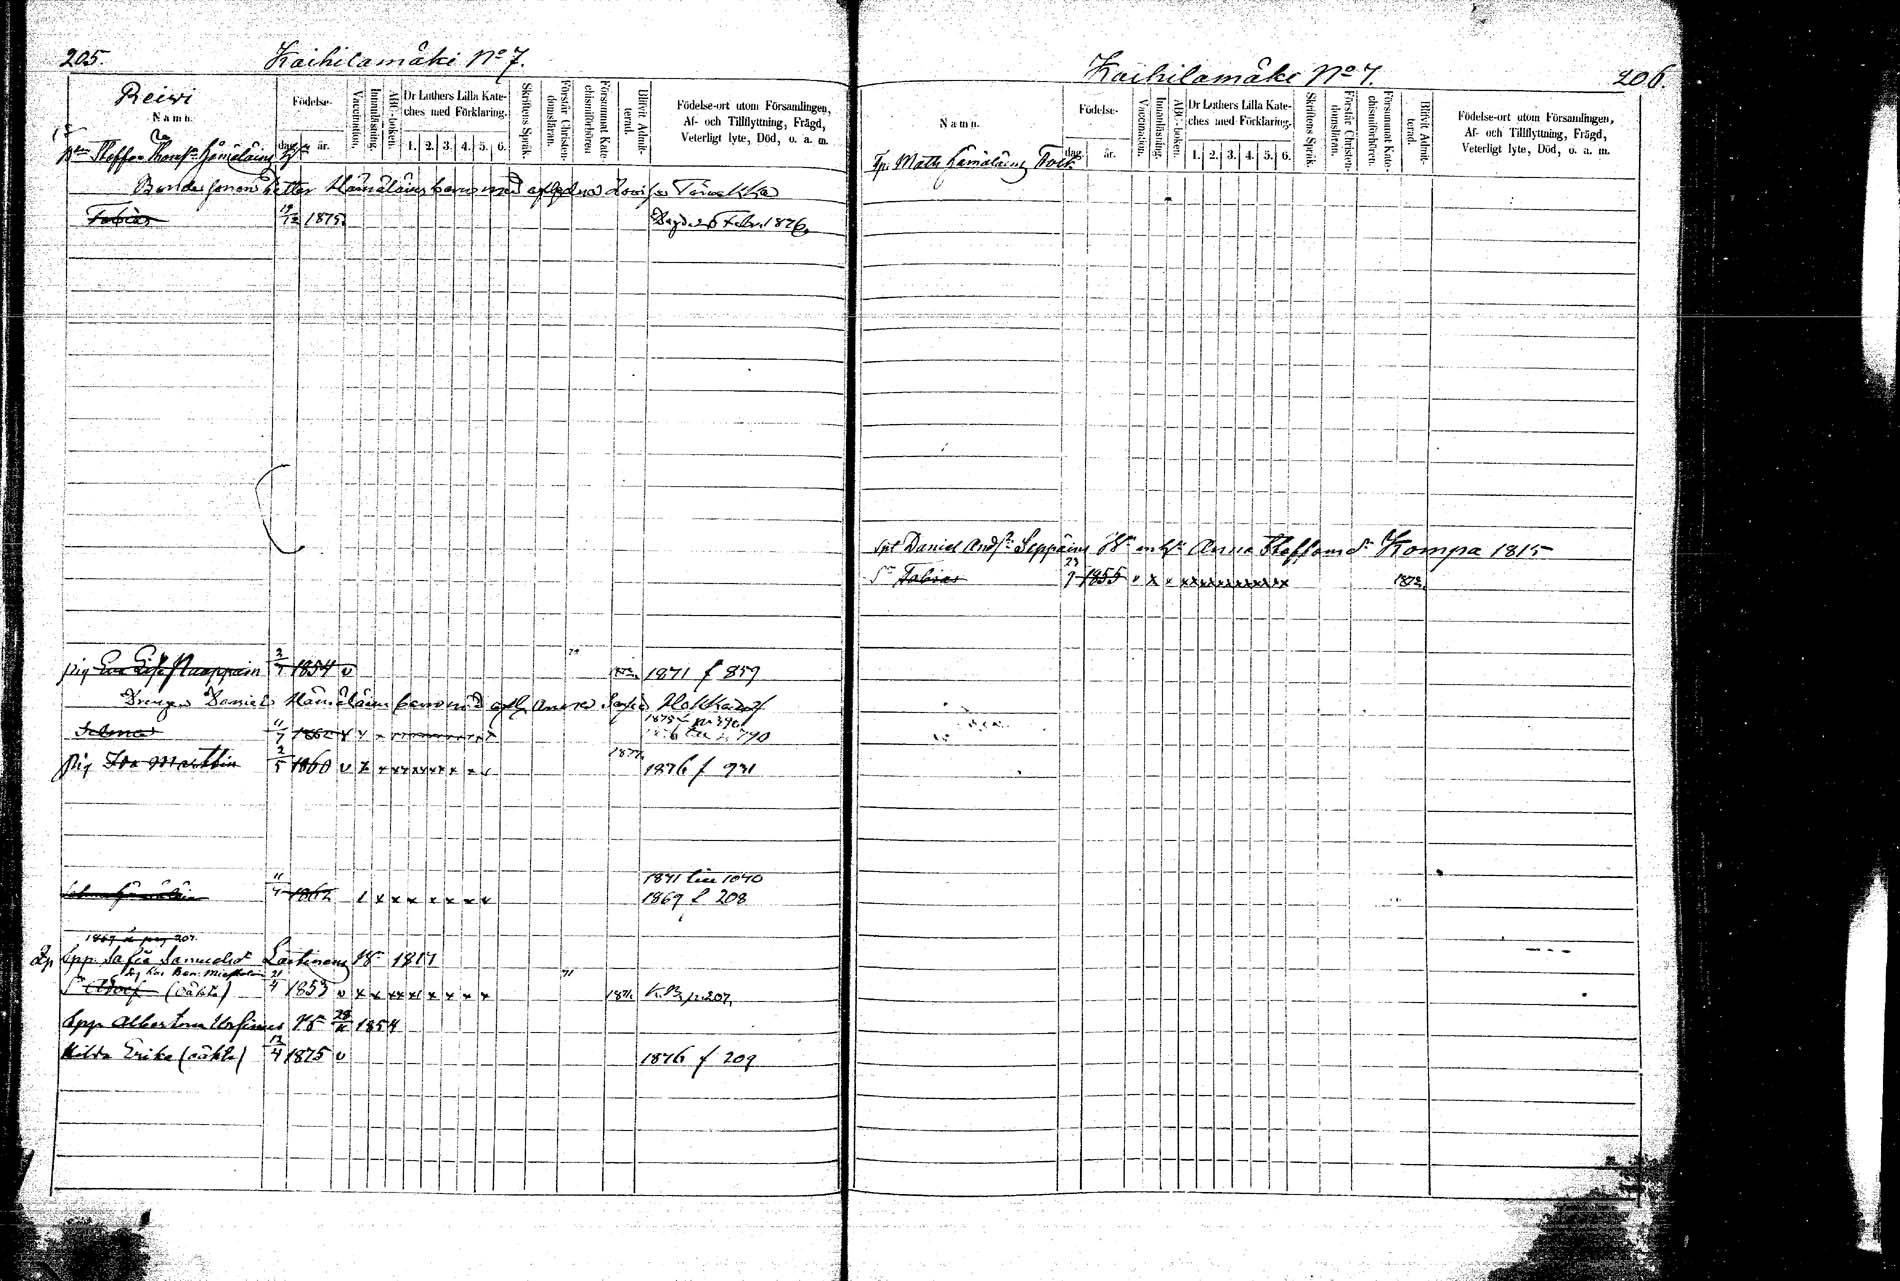 205.
Kaihilamäki No 7.
Reiwi
Namn.
Födelse-
dag
år.
Vaccination.
Innanläsning.
ABC-boken.
Dr Luthers Lilla Kate-
ches med Förklaring.
1. 2. 3. 4. 5. 6.
Skriftens Språk.
Förstår Christen-
domsläran.
Försummat Kate-
chismiförhören
Blifvit Admit-
terad.
Födelse-ort utom Församlingen,
Af- och Tillflyttning, Frägd,
Veterligt lyte, Död, o. a. m.
Staffan Hämäläins
Bondesonen Petter Hämäläins barn med aflidna Lovisa
Tobias 19/12 1875.
Febr. 1876
pig Eva Lisa 2/7 1854 v 1871 f 859
Drengen Daniel Hämäläins barn med Anna Sofia
1875 pag 396
Selma 11/7 1862 790
pig Ida Marttin 2/5 1860 v x 1877 1876 f 931
1871 till 1040
Selma Hämäläin 11/7 1862 1869 f 208
1869 pag 207.
Spp. Safia Samuelsdr Laitinens 1817
S. Adolf (oäkta) 21/4 1853 v x x x x x x x x 1871 K.B. p. 207.
Spp Albertina Ursinus 28 1854
Hilda Erika (oäkta) 12/4 1875 v 1876 f 209
Kaihilamäki No 7.
206.
Namn.
Födelse-
dag
år.
Vaccination.
Innanläsning.
ABC-boken.
Dr Luthers Lilla Kate-
ches med Förklaring.
1. 2. 3. 4. 5. 6.
Skriftens Språk.
Förstår Christen-
domsläran.
Försummat Kate-
chismiförhören
Blifvit Admit-
terad.
Födelse-ort utom Församlingen,
Af- och Tillflyttning, Frägd,
Veterligt lyte, Död, o. a. m.
Matts Hämäläins Folk
Daniel Seppäins Anna Staffansdr Kompa 1815
S. Tobias 23/7 1855 v x v x x x x x x x x x x x 1872.